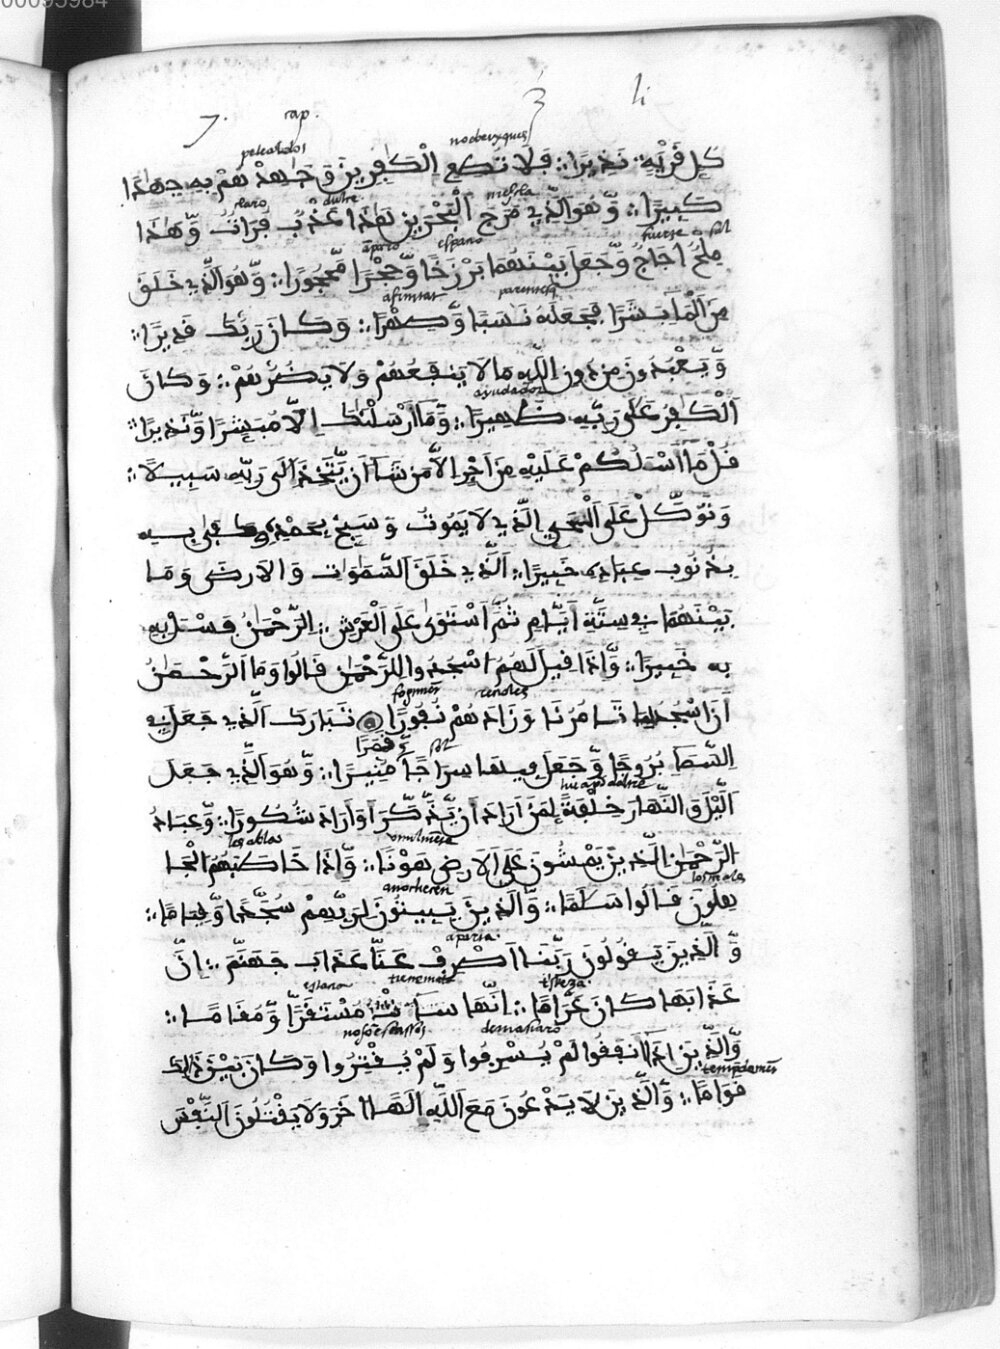 00095984
7. cap. 3 li
pelealdos no obedezques
كُلِّ قَرْيَةٍ نَذِيرًا ؞ فَلَا تُطِعِ الْكَٰفِرِينَ وَجَٰهِدْهُمْ بِهِ جِهَادًا
claro dulce mescla
كَبِيرًا ؞ وَّهُوَ الَّذِي مَرَجَ الْبَحْرَيْنِ هَٰذَا عَذْبٌ فُرَاتٌ وَّهَٰذَا
aparto espacio fuerte sal
مِلْحٌ اُجَاجٌ وَّجَعَلَ بَيْنَهُمَا بَرْزَخًا وَّحِجْرًا مَّحْجُورًا ؞ وَّهُوَ الَّذِي خَلَقَ
afinitat
مِنَ الْمَا بَشَرًا فَجَعَلَهُ نَسَبًا وَّصِهْرًا ؞ وَكَانَ رَبُّكَ قَدِيرًا ؞
وَّيَعْبُدُونَ مِن دُونِ اللَّهِ مَا لَا يَنفَعُهُمْ وَلَا يَضُرُّهُمْ ؞ وَكَانَ
ayudador
اَلْكَافِرُ عَلَى رَبِّهِ ظَهِيرًا ؞ وَّمَا أَرْسَلْنَٰكَ اِلَّا مُبَشِّرًا وَّنَذِيرًا ؞
قُلْ مَا أَسْـَٔلُكُمْ عَلَيْهِ مِنَ اَجْرٍ اِلَّا مَن شَآ اَنْ يَّتَّخِذَ اَلَى رَبِّهِ سَبِيلًا ؞
وَتَوَكَّلْ عَلَى اَلْحَيِّ اِلَّذِي لَا يَمُوتُ وَسَبِّحْ بِحَمْدِهِ وَكَفَىٰ بِهِ
بِذُنُوبِ عِبَادِهِ خَبِيرًا ؞ اَلَّذِي خَلَقَ اَلسَّمَٰوَاتِ وَالَارْضَ وَمَا
بَيْنَهُمَا فِي سِتَّةِ اَيَّامٍ ثُمَّ اَسْتَوَىٰ عَلَى اَلْعَرْشِ ؞ اِلرَّحْمَٰنُ فَسْـَٔلْ بِهِ
بِهِ خَبِيرًا ؞ وَّإِذَا قِيلَ لَهُمُ اسْجُدُوا لِلرَّحْمَٰنِ قَالُوا وَمَا اَلرَّحْمَٰنُ
اَنَسْجُدُ لِمَا تَامُرُنَا وَزَادَهُمْ نُفُورًا تَبَارَكَ اَلَّذِي جَعَلَ فِي
وَّقَمَرًا sol
اِلسَّمَا بُرُوجًا وَّجَعَلَ فِيهَا سِرَاجًا مُّنِيرًا ؞ وَّهُوَ الَّذِي جَعَلَ
اَلَّيْلَ وَالنَّهَارَ خِلْفَةً لِّمَنَ اَرَادَ اَن يَّذَّكَّرَ أَوَ اَرَادَ شُكُورًا ؞ وَّعِبَادُ
los ablas
اَلرَّحْمَٰنِ الَّذِينَ يَمْشُونَ عَلَى اَلَارْضِ هَوْنًا ؞ وَّإِذَا خَاطَبَهُمُ الْجَا
anocheren
هِلُونَ قَالُوا سَلَٰمًا ؞ وَّالَّذِينَ يَبِيتُونَ لِرَبِّهِمْ سُجَّدًا وَّقِيَامًا ؞
aparta
وَّالَّذِينَ يَقُولُونَ رَبَّنَا اَصْرِفْ عَنَّا عَذَابَ جَهَنَّمَ ؞ إِنَّ
عَذَابَهَا كَانَ غَرَامًا ؞ إِنَّهَا سَآءَتْ مُسْتَقَرًّا وَّمُقَامًا ؞
demasiaro
وَّالَّذِينَ إِذَا أَنفَقُوا لَمْ يُسْرِفُوا وَلَمْ يُقْتِرُوا وَكَانَ بَيْنَ ذَٰلِكَ
قَوَامًا ؞ وَّالَّذِينَ لَا يَدْعُونَ مَعَ اَللَّهِ إِلَٰهًا اخَرَ وَلَا يَقْتُلُونَ اَلنَّفْسَ